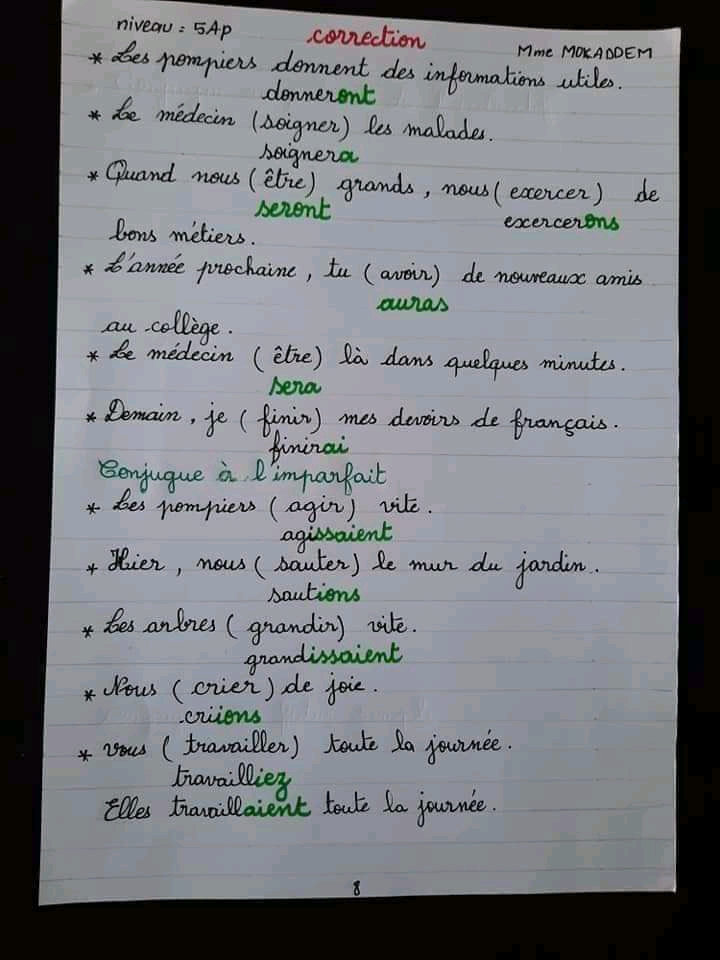 niveau : 5Ap
correction
Mme MOKADDEM
* Les pompiers donnent des informations utiles.
donneront
* Le médecin (soigner) les malades.
soignera
* Quand nous (être) grands, nous (exercer) de
seront exercerons
bons métiers.
* L'année prochaine, tu (avoir) de nouveaux amis
auras
au collège.
* Le médecin (être) là dans quelques minutes.
sera
* Demain, je (finir) mes devoirs de français.
finirai
Conjugue à l'imparfait
* Les pompiers (agir) vite.
agissaient
* Hier, nous (sauter) le mur du jardin.
sautions
* Les arbres (grandir) vite.
grandissaient
* Nous (crier) de joie.
criions
* vous (travailler) toute la journée.
travailliez
Elles travaillaient toute la journée.
8